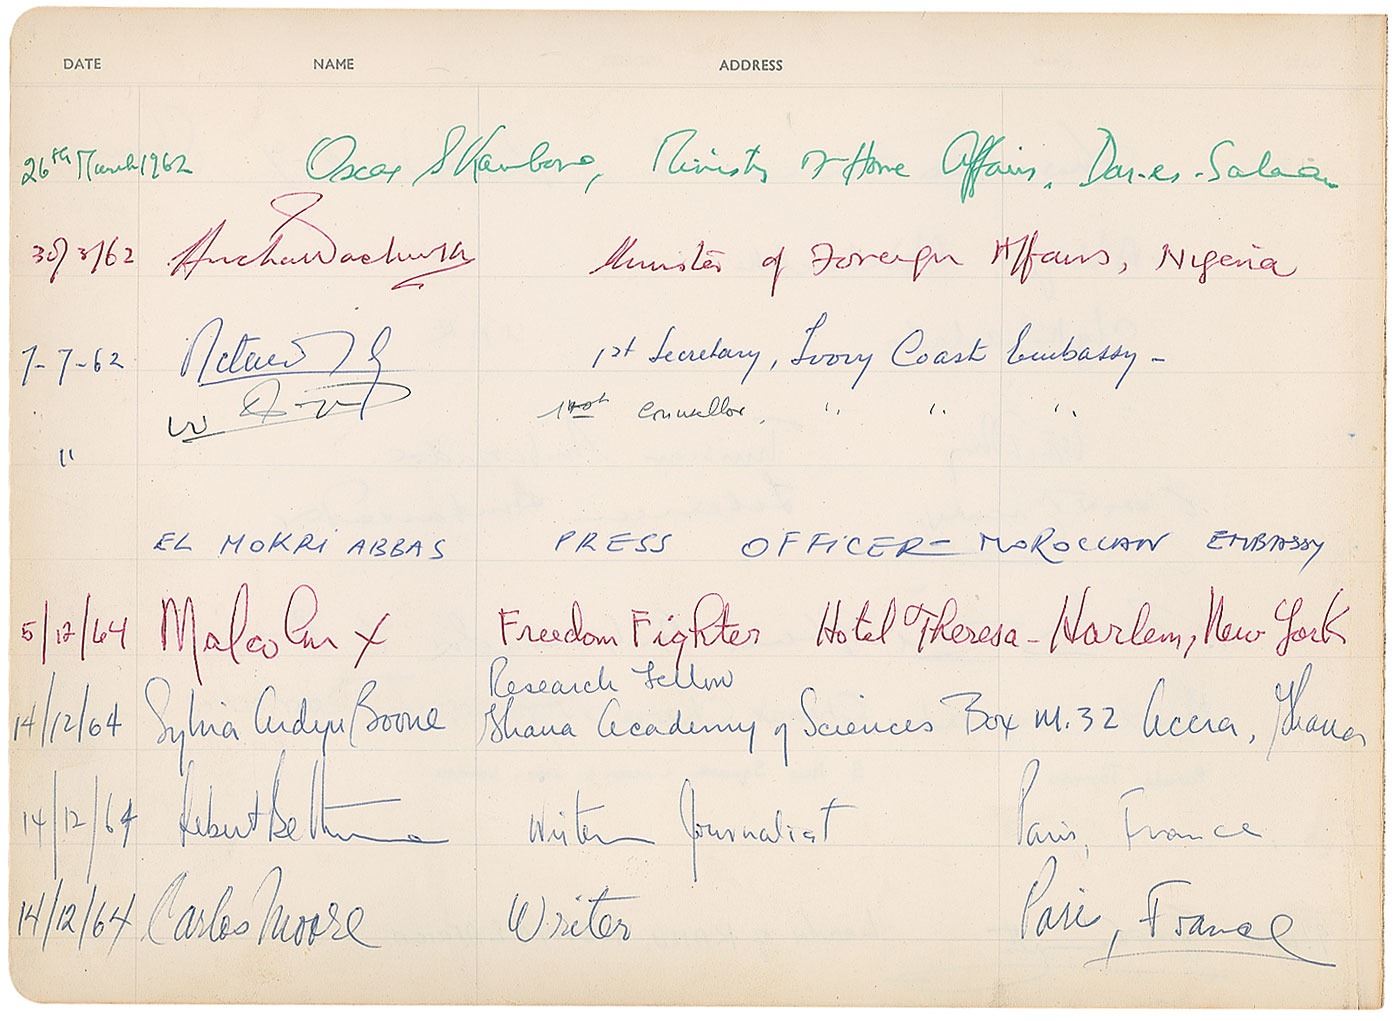 DATE NAME ADDRESS
26th March 1962 Oscar S Kambona, Ministry of Home Affairs, Dar-es-Salaam
30/3/62 Minister of Foreign Affairs, Nigeria
7-7-62 1st Secretary, Ivory Coast Embassy -
Counsellor, " " "
"
EL MOKRI ABBAS PRESS OFFICER - MOROCCAN EMBASSY
5/12/64 Malcolm X Freedom Fighter Hotel Theresa - Harlem, New York
Research Fellow
14/12/64 Sylvia Ardyn Boone Ghana Academy of Sciences Box M.32 Accra, Ghana
14/12/64 Writer Journalist Paris, France
14/12/64 Carlos Moore Writer Paris, France